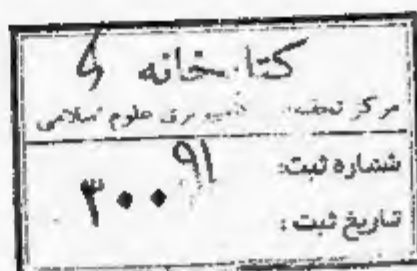 کتابخانه
مرکز تحقیقات کامپیوتری علوم اسلامی
شماره ثبت: ۳۰۰۹۱
تاریخ ثبت: